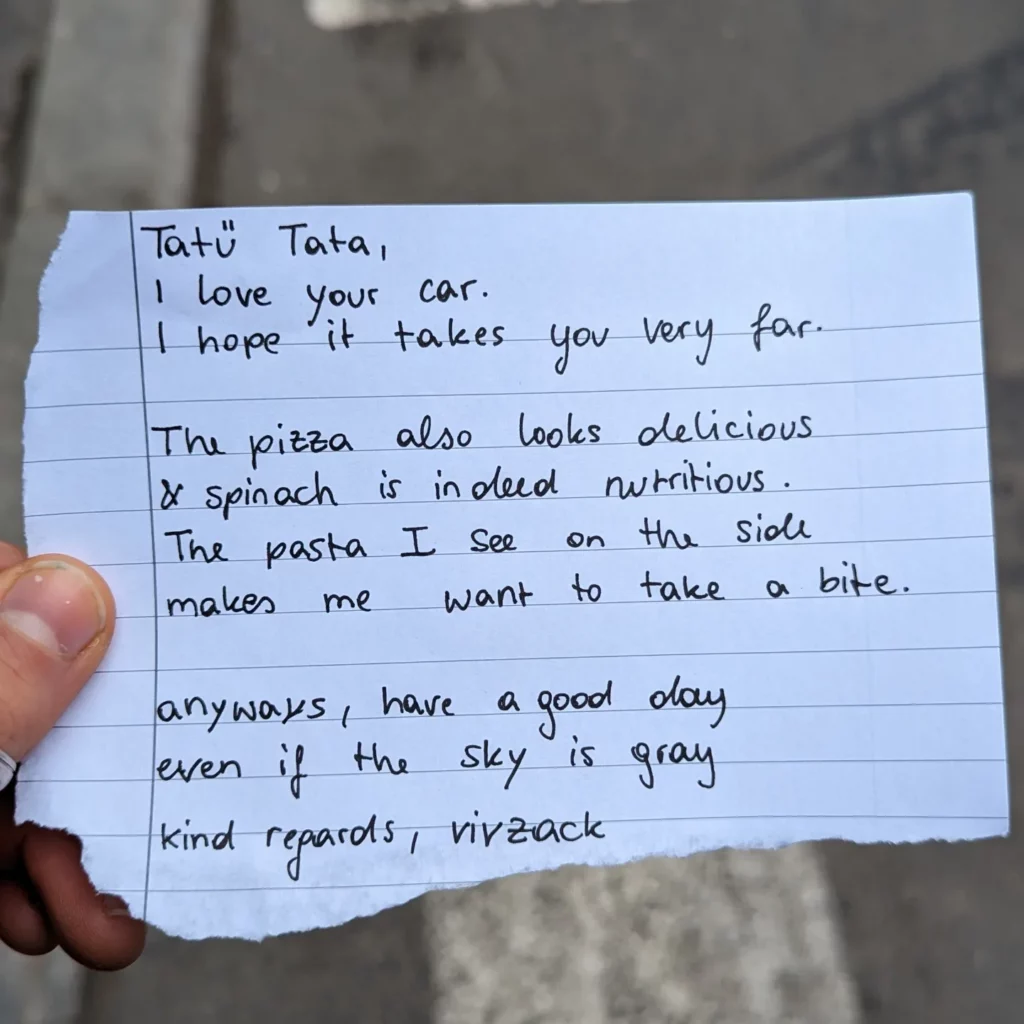 Tatü Tata,
I love your car.
I hope it takes you very far.
The pizza also looks delicious
& spinach is indeed nutritious.
The pasta I see on the side
makes me want to take a bite.
anyways, have a good day
even if the sky is gray
kind regards, virzack